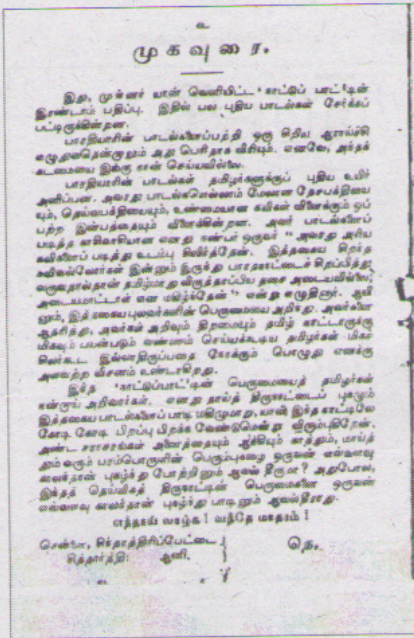 உ
முகவுரை.
இது, முன்னர் யான் வெளியிட்ட 'நாட்டுப் பாட்'டின்
இரண்டாம் பதிப்பு. இதில் பல புதிய பாடல்கள் சேர்க்கப்
பட்டிருக்கின்றன.
பாரதியாரின் பாடல்களைப்பற்றி ஒரு சிறிய ஆராய்ச்சி
எழுதுவதென்றாலும் அது பெரிதாக விரியும். எனவே, அந்தக்
கடமையை இங்கு நான் செய்யவில்லை.
பாரதியாரின் பாடல்கள் தமிழர்களுக்குப் புதிய உயிர்
அளிப்பன. அவரது பாடல்களெல்லாம் மேலான தேசபக்தியை
யும், தெய்வபக்தியையும், உண்மையான கவிகள் விளைக்கும் ஒப்
பற்ற இன்பத்தையும் விளைக்கின்றன. அவர் பாடல்களைப்
படித்த எனது நண்பர் ஒருவர் "அவரது அரிய
கவிகளைப் படித்து உடம்பு சிலிர்த்தேன். இத்தகைய சிறந்த
கவிவல்லோர்கள் இன்னும் இருந்து பாரதநாட்டைச் சிறப்பித்து
வருவதால்தான் தமிழ்மாது விருத்தாப்பிய தசை அடையவில்லை,
அடையமாட்டாள் என மகிழ்ந்தேன்" என்று எழுதினார். ஆயி
னும், இத்தகைய புலவர்களின் பெருமையை அறிந்து. அவர்களை
ஆதரித்து, அவர்கள் அறிவும் திறமையும் தமிழ் நாட்டாருக்கு
மிகவும் பயன்படும் வண்ணம் செய்யக்கூடிய தமிழர்கள் மிகச்
சிலர்கூட இல்லாதிருப்பதை நோக்கும் பொழுது எனக்கு
அளவற்ற விசனம் உண்டாகிறது.
இந்த 'நாட்டுப்பாட்'டின் பெருமையைத் தமிழர்கள்
நன்றாய் அறிவார்கள். எனது தாய்த் திருநாட்டைப் புகழும்
இத்தகைய பாடல்களைப் பாடி மகிழுமாறு, யான் இந்த நாட்டிலே
கோடி கோடி பிறப்பு பிறக்க வேண்டுமென்று விரும்புகிறேன்.
அண்ட சராசரங்கள் அனைத்தையும் ஆக்கியும் காத்தும், மாய்த்
தும் வரும் பரம்பொருளின் பெரும்புகழை ஒருவன் எவ்வளவு
காலந்தான் புகழ்ந்து போற்றினும் ஆவல் தீருமா? அதுபோல,
இந்தத் தெய்வீகத் திருநாட்டின் பெருமைகளை ஒருவன்
எவ்வளவு காலந்தான் புகழ்ந்து பாடினும் ஆவல்தீராது.
எந்தாய் வாழ்க! வந்தே மாதரம்!
சென்னை, சிந்தாத்திரிப்பேட்டை
சித்தார்த்தி: ஆனி.
நெ.